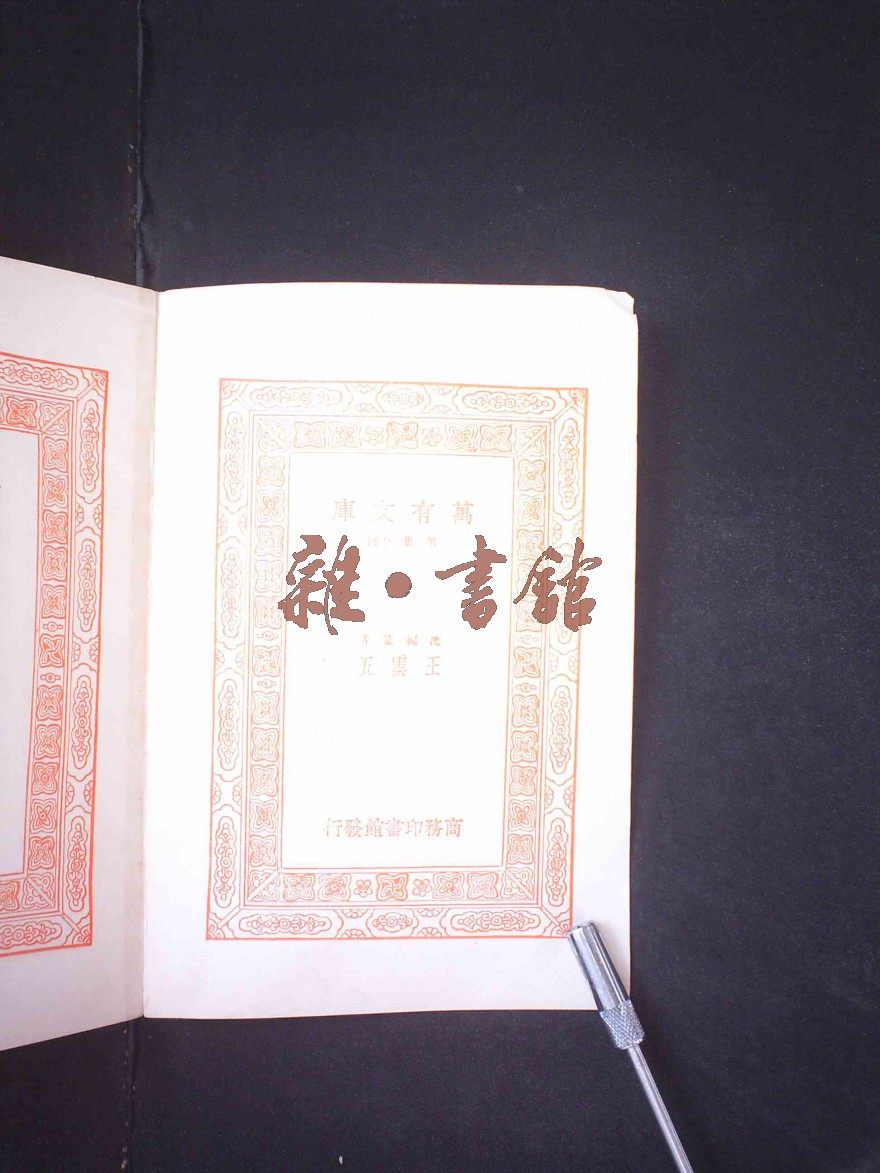 萬有文庫
第一集一千種
雜•書館
總編纂者
王雲五
商務印書館發行